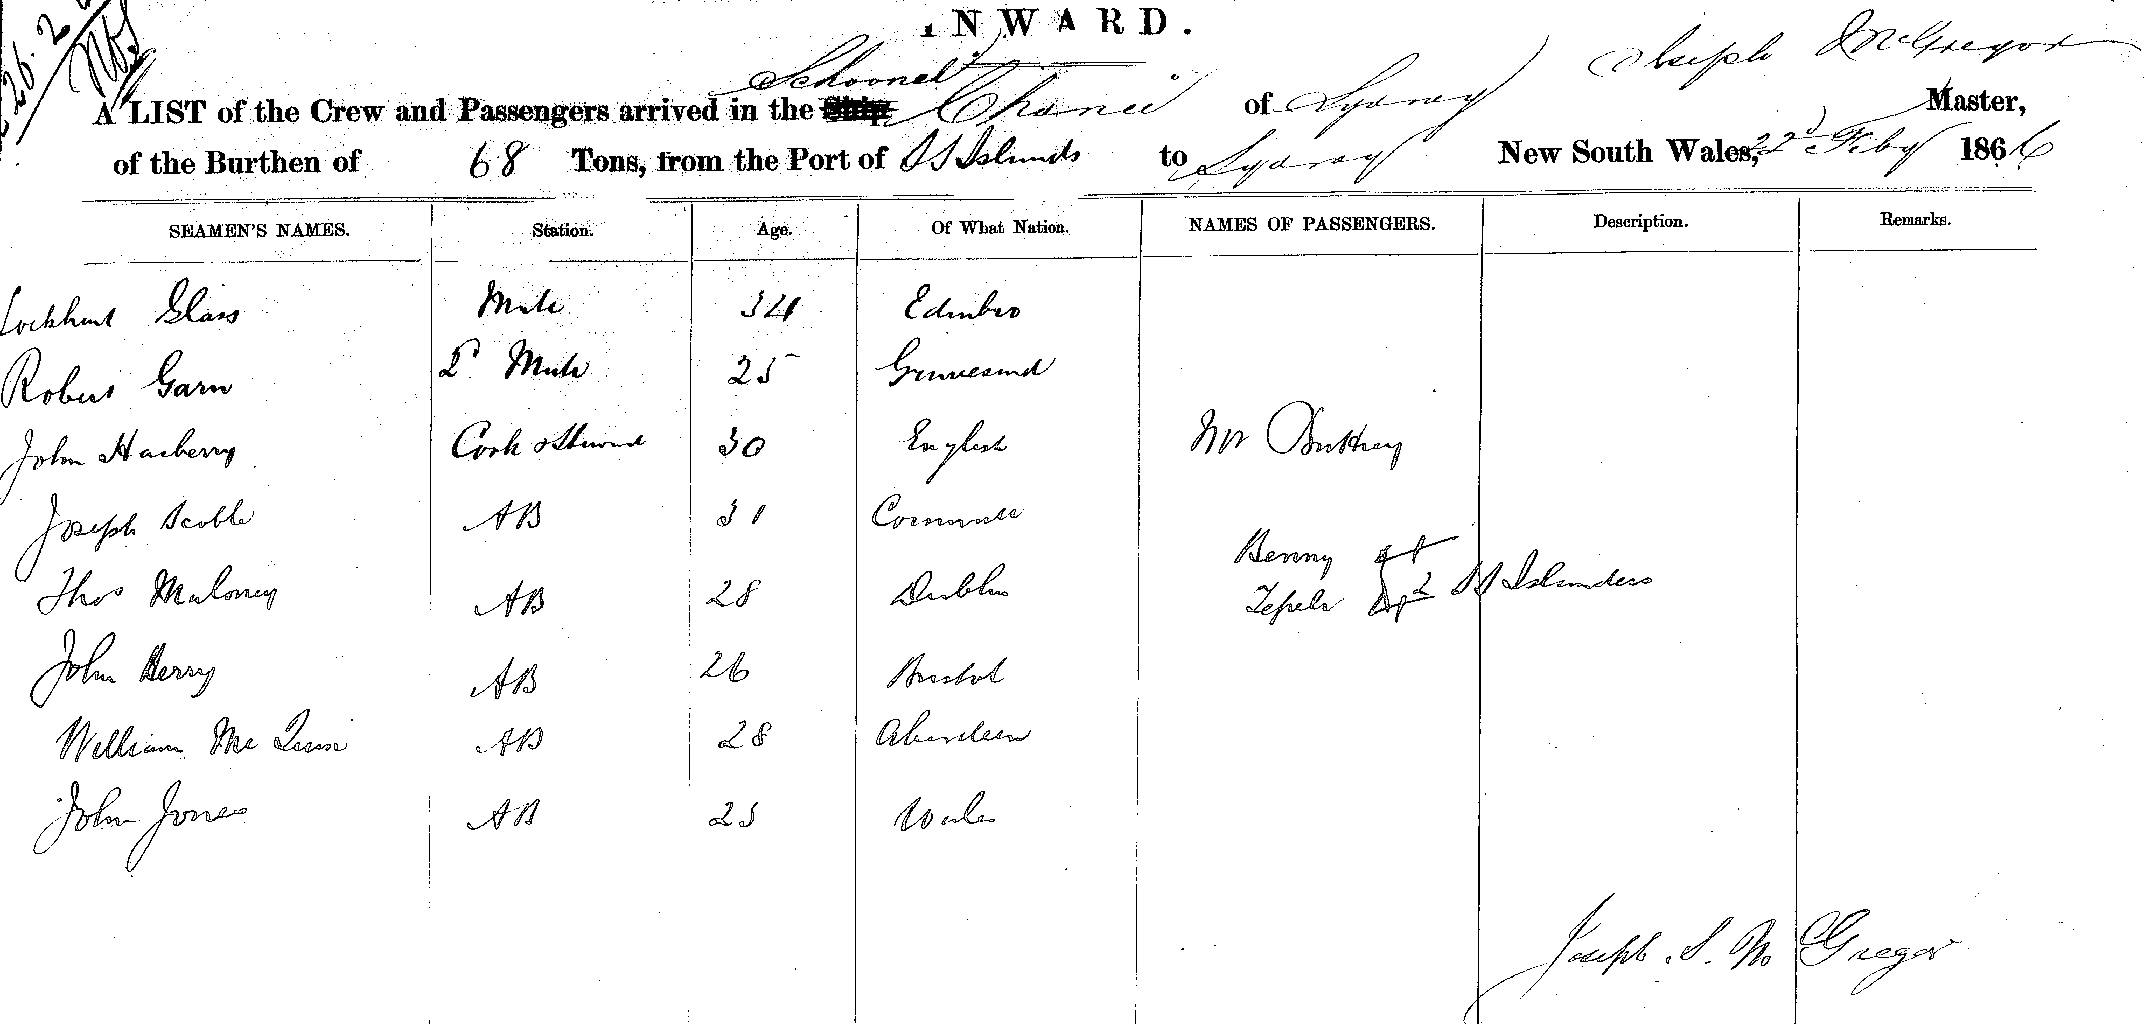 INWARD.
Schooner Joseph McGregor
A LIST of the Crew and Passengers arrived in the Ship of Sydney Master,
of the Burthen of 68 Tons, from the Port of S S Islands to Sydney New South Wales, 22d Feby 1866
SEAMEN'S NAMES. Station. Age. Of What Nation. NAMES OF PASSENGERS. Description. Remarks.
Lockhart Glass Mate 34 Edinbro
Robert Garn 2d Mate 25 Gravesend
John Hacberry Cook & Steward 30 English Mr
Joseph Scoble AB 31 Cornwall
Benny
Thos Maloney AB 28 Dublin 2 S S Islanders
John Berry AB 26 Bristol
William Mc AB 28 Aberdeen
John Jones AB 25 Wales
Joseph . S. Mc Gregor